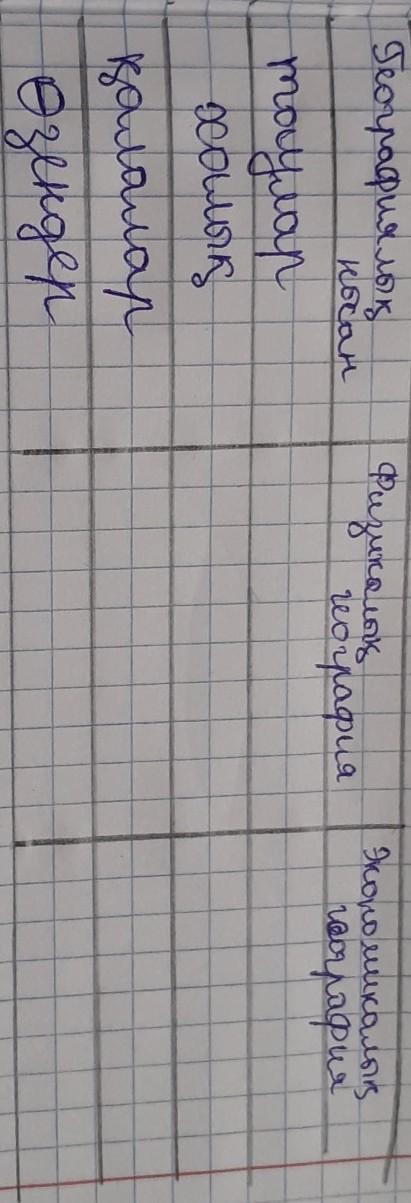 Географиялық
нысан
Физикалық
география
Экономикалық
география
таулар
халық
қалалар
Өзендер